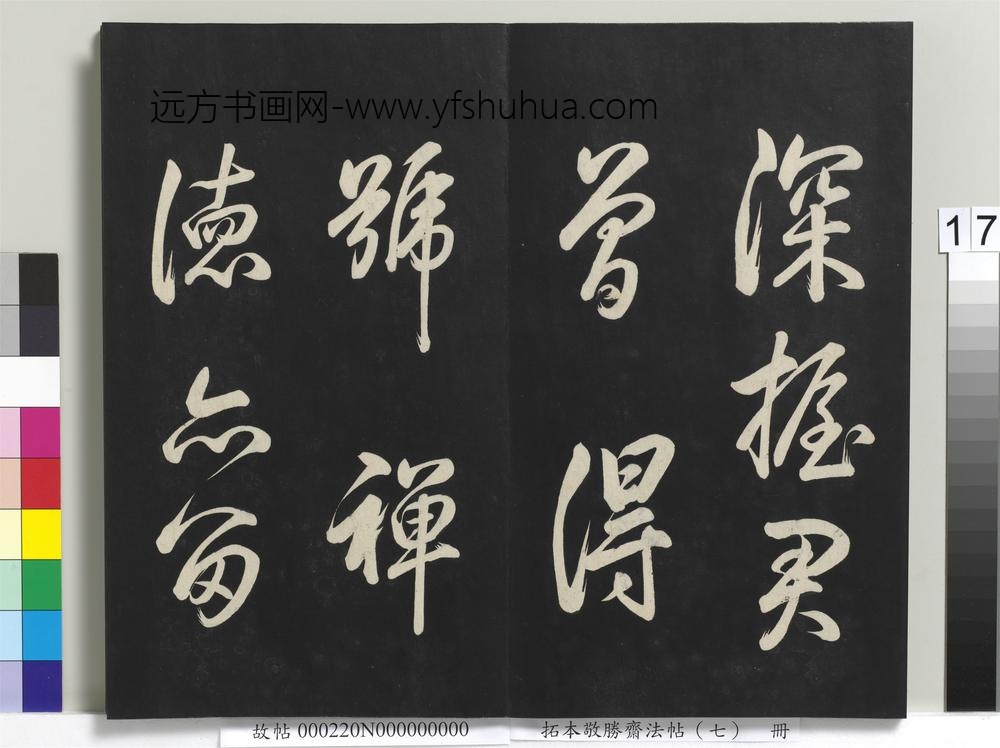 远方书画网-www.yfshuhua.com
深握
曾得
號禪
德亦留
17
故帖 000220N000000000
拓本敬勝齋法帖（七） 冊